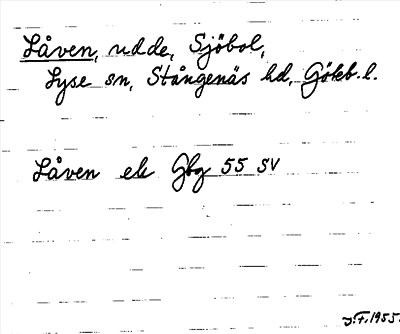 Låven, udde, Sjöbol,
Lyse sn, Stångenäs hd, Göteb. l.
Låven ek Gbg 55 SV
J.F. 1955.